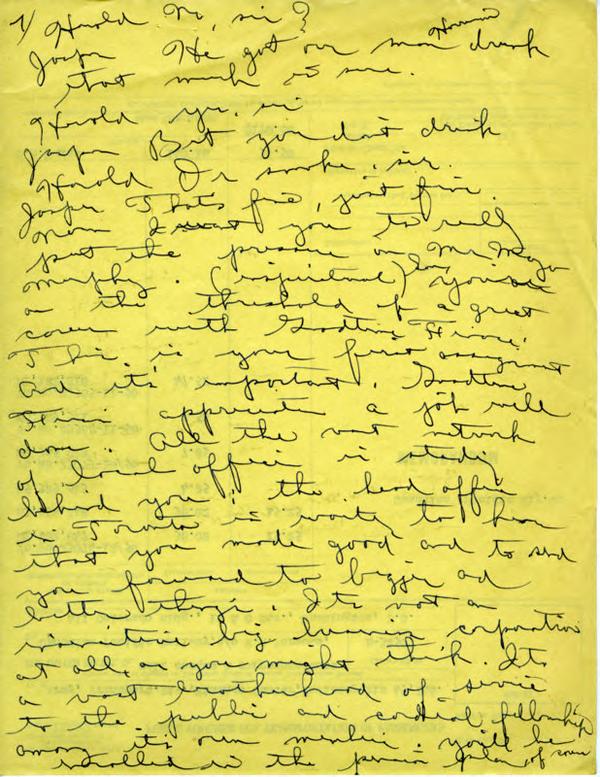 7/ Harold No, sir?
Jasper He got our man Horrowin drunk
that much is sure.
Harold Yes, sir
Jasper But you don't drink
Harold Or smoke, sir.
Jasper That's fine, just fine.
Now I want you to really
put the pressure on Mr Mayor
Murphy. (inspirational) Son you're
on the threshold of a great
career with Goodtime Finance.
This is your first assignment
and it's important. Goodtime
Finance appreciates a job well
done. All the vast network
of local offices is standing
behind you; the head office
in Toronto is waiting to hear
that you made good and to send
you forward to bigger and
better things. Its not an
insensitive big business corporation
at all, as you might think. Its
a vast brotherhood of service
to the public and cordial fellowship
among it's own members. You'll be
enrolled in the pension plan, of course